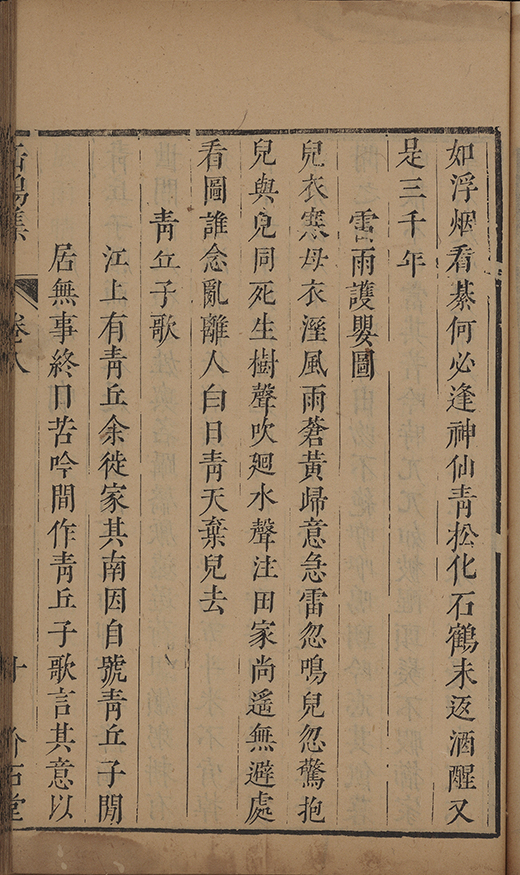 如浮烟看棊何必逢神仙青松化石鶴未返酒醒又
是三千年
雷雨護嬰圖
兒衣寒母衣溼風雨蒼黃歸意急雷忽鳴兒忽驚抱
兒與兒同死生樹聲吹廻水聲注田家尚遥無避處
看圖誰念亂離人白日青天棄兒去
青丘子歌
江上有青丘余徙家其南因自號青丘子閒
居無事終日苦吟間作青丘子歌言其意以
卷八
十